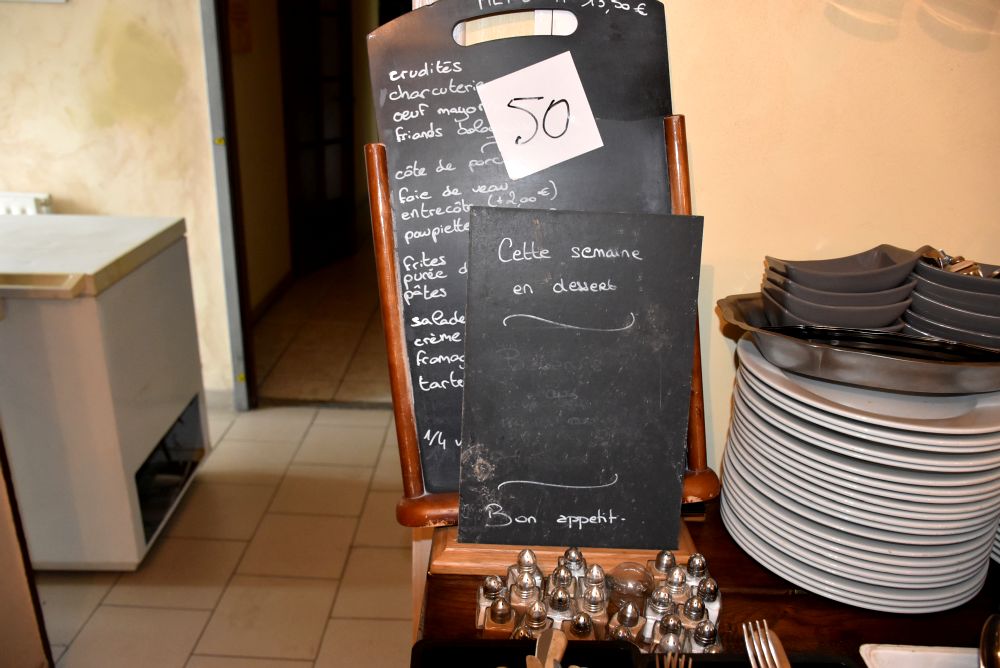 13,50€
crudités
charcuterie
œuf mayo
friands
50
côte de porc
foie de veau
entrecôte (+2,00€)
paupiette
frites
purée d
pâtes
salade
crème
fromag
tarte
1/4
Cette semaine
en dessert
Bon appetit.